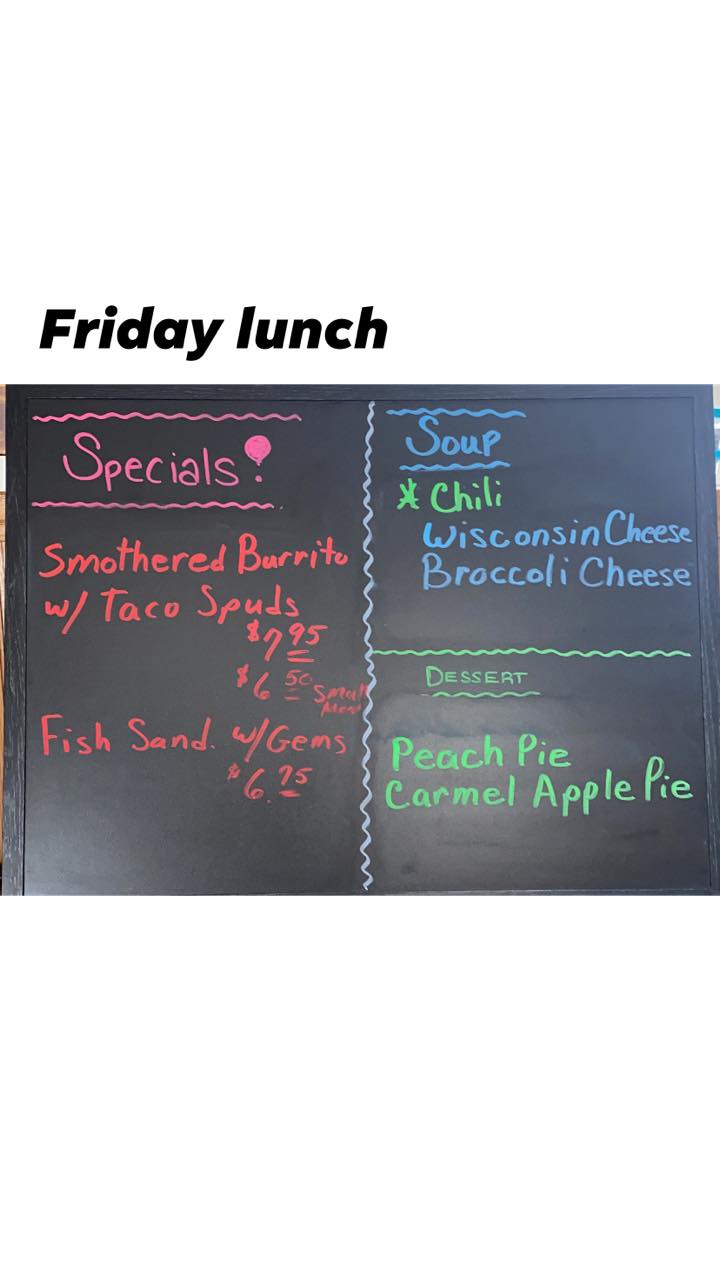 Friday lunch
Specials!
Smothered Burrito
w/ Taco Spuds
$7.95
$6.50 Small
Fish Sand. w/Gems
$6.75
Soup
* Chili
Wisconsin Cheese
Broccoli Cheese
DESSERT
Peach Pie
Carmel Apple Pie